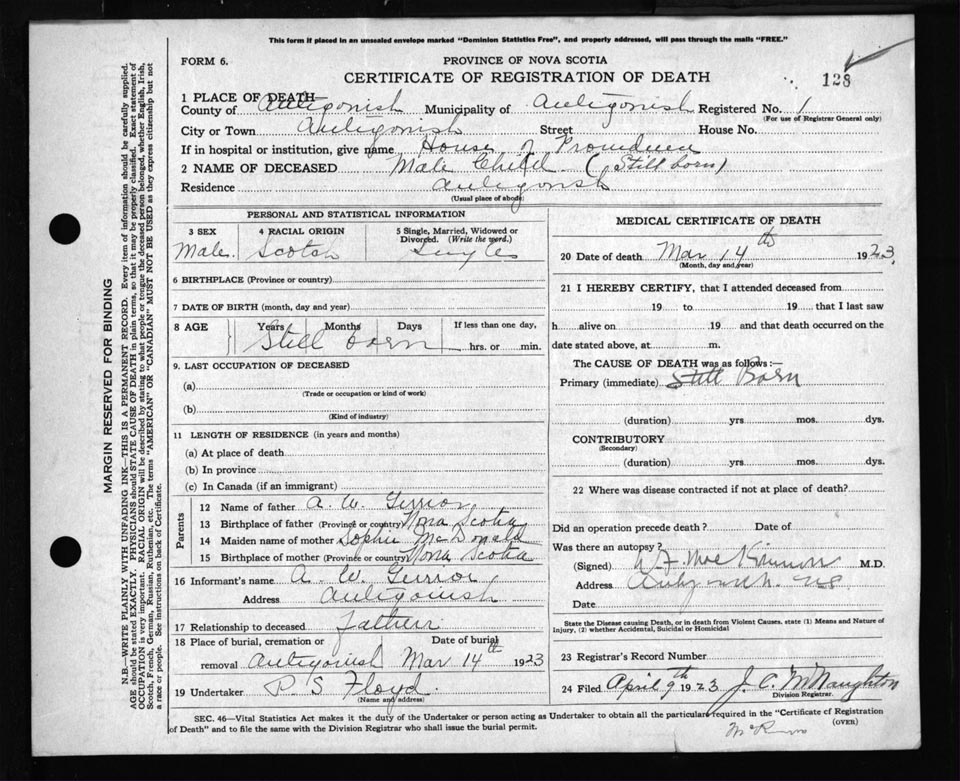 This form if placed in an unsealed envelope marked "Dominion Statistics Free", and properly addressed, will pass through the mails "FREE."
FORM 6.
PROVINCE OF NOVA SCOTIA
CERTIFICATE OF REGISTRATION OF DEATH
128
1 PLACE OF DEATH
County of Antigonish Municipality of Antigonish Registered No. 1
(For use of Registrar General only)
City or Town Antigonish Street House No.
If in hospital or institution, give name House of Providence
2 NAME OF DECEASED Male Child (Still born)
Residence Antigonish
(Usual place of abode)
PERSONAL AND STATISTICAL INFORMATION
3 SEX 4 RACIAL ORIGIN 5 Single, Married, Widowed or Divorced. (Write the word.)
Male. Scotch Single
6 BIRTHPLACE (Province or country)
7 DATE OF BIRTH (month, day and year)
8 AGE Years Months Days If less than one day,
Still Born hrs. or min.
9. LAST OCCUPATION OF DECEASED
(a)
(Trade or occupation or kind of work)
(b)
(Kind of industry)
11 LENGTH OF RESIDENCE (in years and months)
(a) At place of death
(b) In province
(c) In Canada (if an immigrant)
Parents
12 Name of father A. W. Girrior
13 Birthplace of father (Province or country) Nova Scotia
14 Maiden name of mother Sophie McDonald
15 Birthplace of mother (Province or country) Nova Scotia
16 Informant's name A. W. Girrior
Address Antigonish
17 Relationship to deceased Father
18 Place of burial, cremation or Date of burial
removal Antigonish Mar 14th 1923
19 Undertaker P. S. Floyd.
(Name and address)
MEDICAL CERTIFICATE OF DEATH
20 Date of death Mar 14th 1923.
(Month, day and year)
21 I HEREBY CERTIFY, that I attended deceased from
19 to 19 that I last saw
h alive on 19 and that death occurred on the
date stated above, at m.
The CAUSE OF DEATH was as follows:—
Primary (immediate) Still Born
(duration) yrs mos. dys.
CONTRIBUTORY
(Secondary)
(duration) yrs. mos. dys.
22 Where was disease contracted if not at place of death?
Did an operation precede death? Date of
Was there an autopsy?
(Signed) W. F. MacKinnon M.D.
Address Antigonish. NS
Date
State the Disease causing Death, or in death from Violent Causes, state (1) Means and Nature of
Injury, (2) whether Accidental, Suicidal or Homicidal
23 Registrar's Record Number
24 Filed April 9th 1923 J. C. McNaughton
Division Registrar.
SEC. 46—Vital Statistics Act makes it the duty of the Undertaker or person acting as Undertaker to obtain all the particulars required in the "Certificate of Registration
of Death" and to file the same with the Division Registrar who shall issue the burial permit.
(OVER)
MARGIN RESERVED FOR BINDING
N.B.—WRITE PLAINLY, WITH UNFADING INK—THIS IS A PERMANENT RECORD. Every item of information should be carefully supplied.
AGE should be stated EXACTLY. PHYSICIANS should STATE CAUSE OF DEATH in plain terms, so that it may be properly classified. Exact statement of
OCCUPATION is very important. RACIAL ORIGIN will be described by stating to what people or tongue the deceased person belonged, whether English, Irish,
Scotch, French, German, Russian, Ruthenian, etc. The terms "AMERICAN" OR "CANADIAN" MUST NOT BE USED as they express citizenship but not
a race or people. See instructions on back of Certificate.